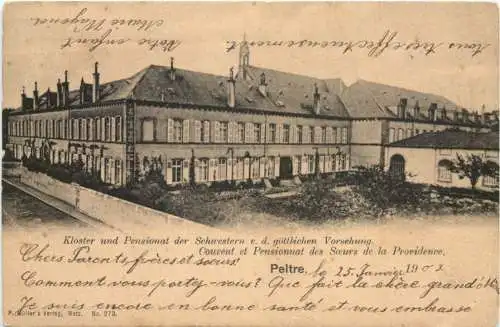 tous très affectueusement
Votre enfant
Marie
Kloster und Pensionat der Schwestern v. d. göttlichen Vorsehung.
Couvent et Pensionnat des Sœurs de la Providence,
Peltre, le 25 Janvier 190
Chers Parents, frères et sœurs!
Comment vous portez-vous? Que fait la chère grand'
Je suis encore en bonne santé et vous embrasse
P. Müller's Verlag, Metz. No. 273.